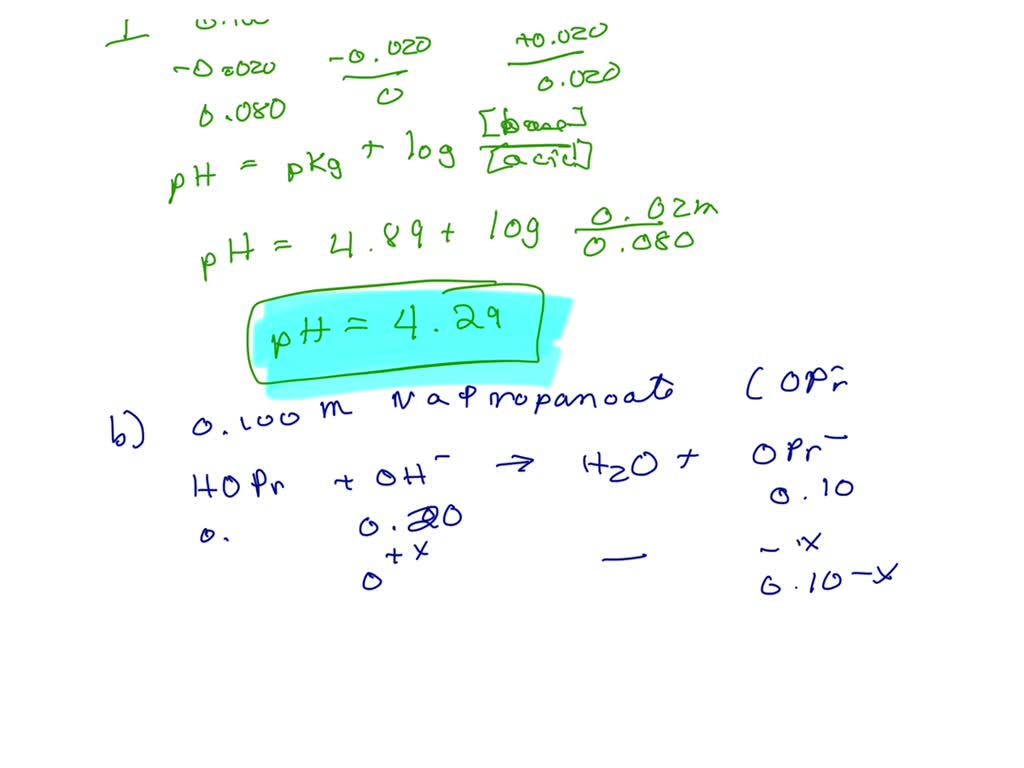 I 0.100
-0.020 -0.020 +0.020
0.080 0 0.020
pH = pKa + log [base]/[acid]
pH = 4.89 + log 0.02m/0.080
pH = 4.29
b) 0.100 m Na Propanoate (OPr-
HOPr + OH- → H2O + OPr-
0. 0.20 0.10
+x — -x
0 0.10-x